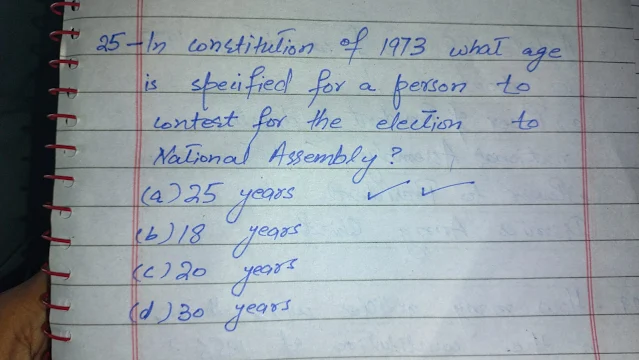 25-In constitution of 1973 what age
is specified for a person to
contest for the election to
National Assembly?
(a) 25 years ✓ ✓
(b) 18 years
(c) 20 years
(d) 30 years